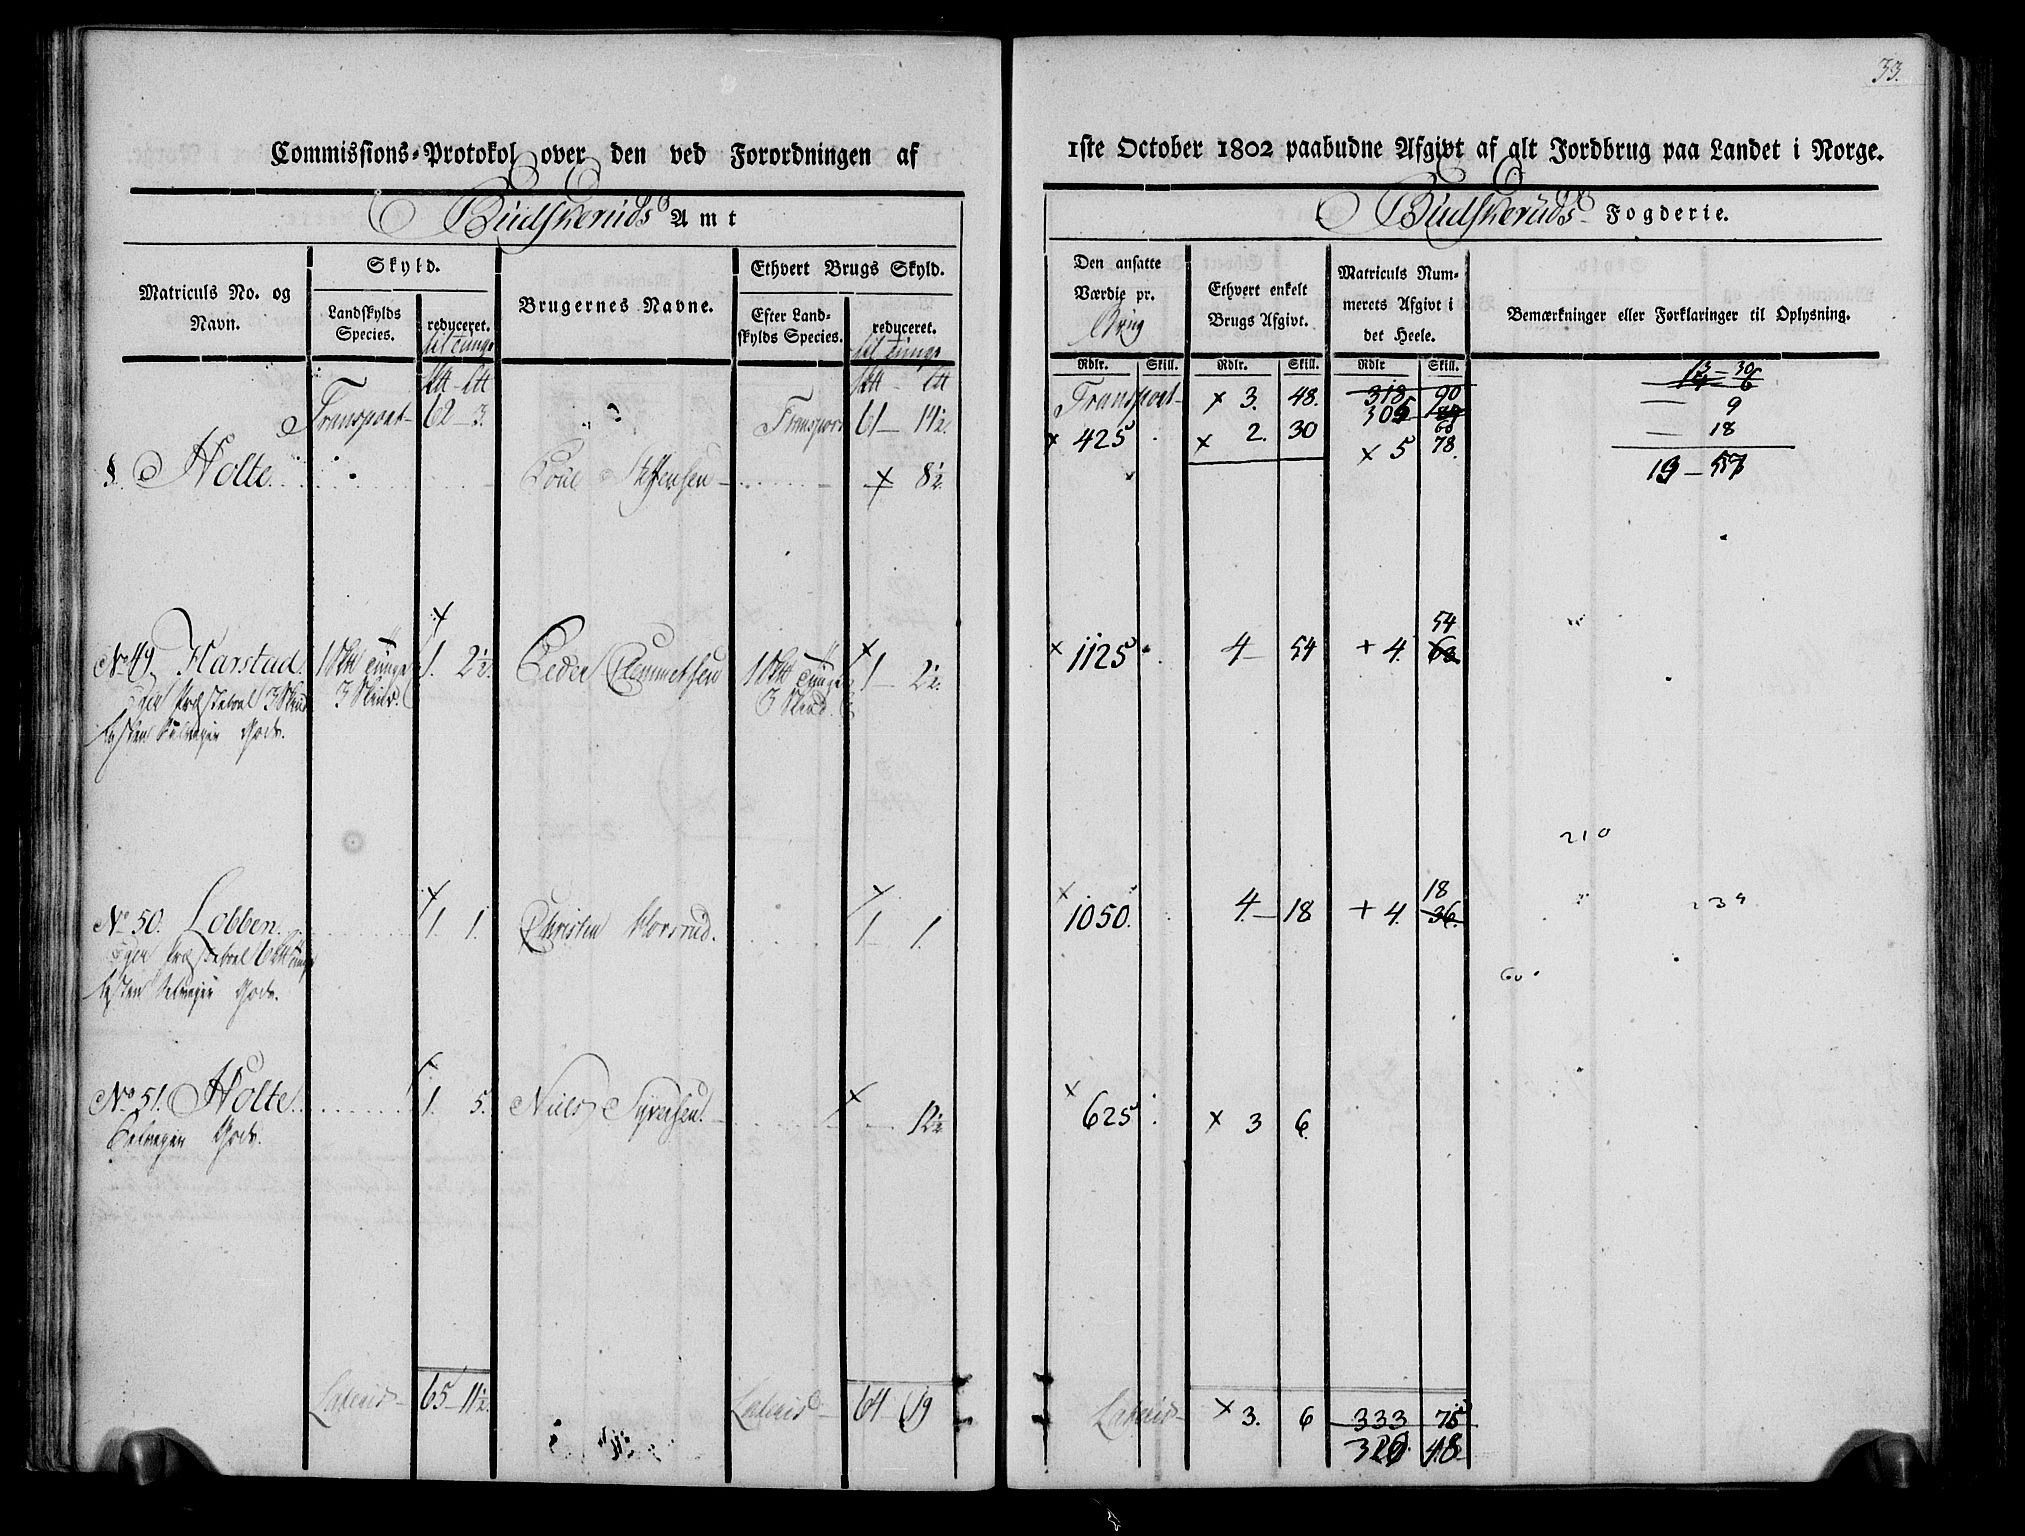 33.
Commissions-Protokol over den ved Forordningen af
1ste October 1802 paabudne Afgivt af alt Jordbrug paa Landet i Norge.
Budskeruds Amt
Budskeruds Fogderie.
Matriculs No. og Navn.
Skyld.
Landskylds Species.
reduceret.
til Tunge
Brugernes Navne.
Ethvert Brugs Skyld.
Efter Landskylds Species.
reduceret.
til Tunge
Den ansatte Værdie pr.
Brug
Rdlr. Skill.
Ethvert enkelt Brugs Afgivt.
Rdlr. Skill.
Matriculs Nummerets Afgivt i det Heele.
Rdlr Skill.
Bemærkninger eller Forklaringer til Oplysning.
Transport 62 - 3. Transport 61 - 14½.
Transport x 3. 48. 318 90
13 - 30
9
18
13 - 57
§. Holte Poul Steffensen x 8½.
x 425 x 2. 30 x 5 78.
No. 49. Harstad. 1 Tunge 3 1. 2½. Peder Clemmetsen 1 Tunge 3 x 1 - 2½.
Eger Præstebol 3
Resten Selveyer Gods.
x 1125 4 - 54 + 4. 54
63
210
No. 50. Lobben. 1. 1. Christen Horsrud. 1 1.
Eger Præstebol 6
Resten Selveyer Gods.
x 1050. 4. - 18 + 4. 18
36.
60
No. 51. Holte 1. 5. Niels Syversen. x 12½
Selveyer Gods.
x 625 x 3 6.
Lateris 65 - 11½. Lateris 64 19
Lateris x 3. 6 333 75
320 48